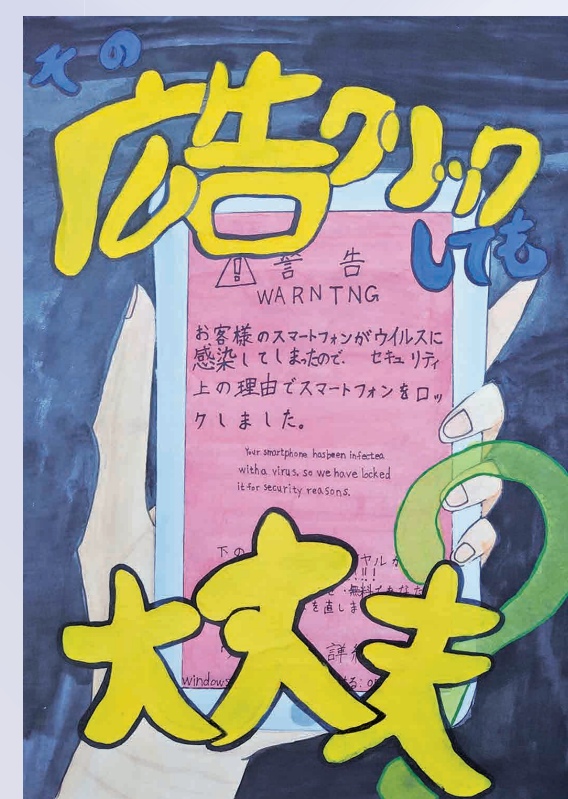 その
広告クリック
しても
警告
WARNTNG
お客様のスマートフォンがウイルスに
感染してしまったので、セキュリティ
上の理由でスマートフォンをロッ
クしました。
Your smartphone hasbeen infected
with a virus, so we have locked
it for security reasons.
下の ヤルか
!!!
無料であなた
を直しま
詳細
windows
大丈夫?